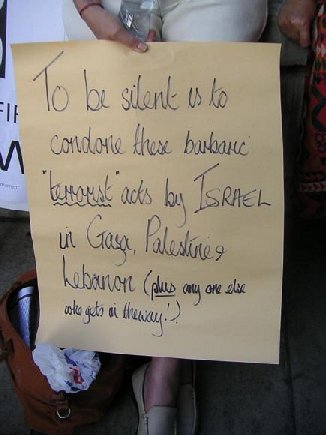 To be silent is to
condone these barbaric
"terrorist" acts by ISRAEL
in Gaza, Palestine &
Lebanon (plus any one else
who gets in the way!)
FIR
W